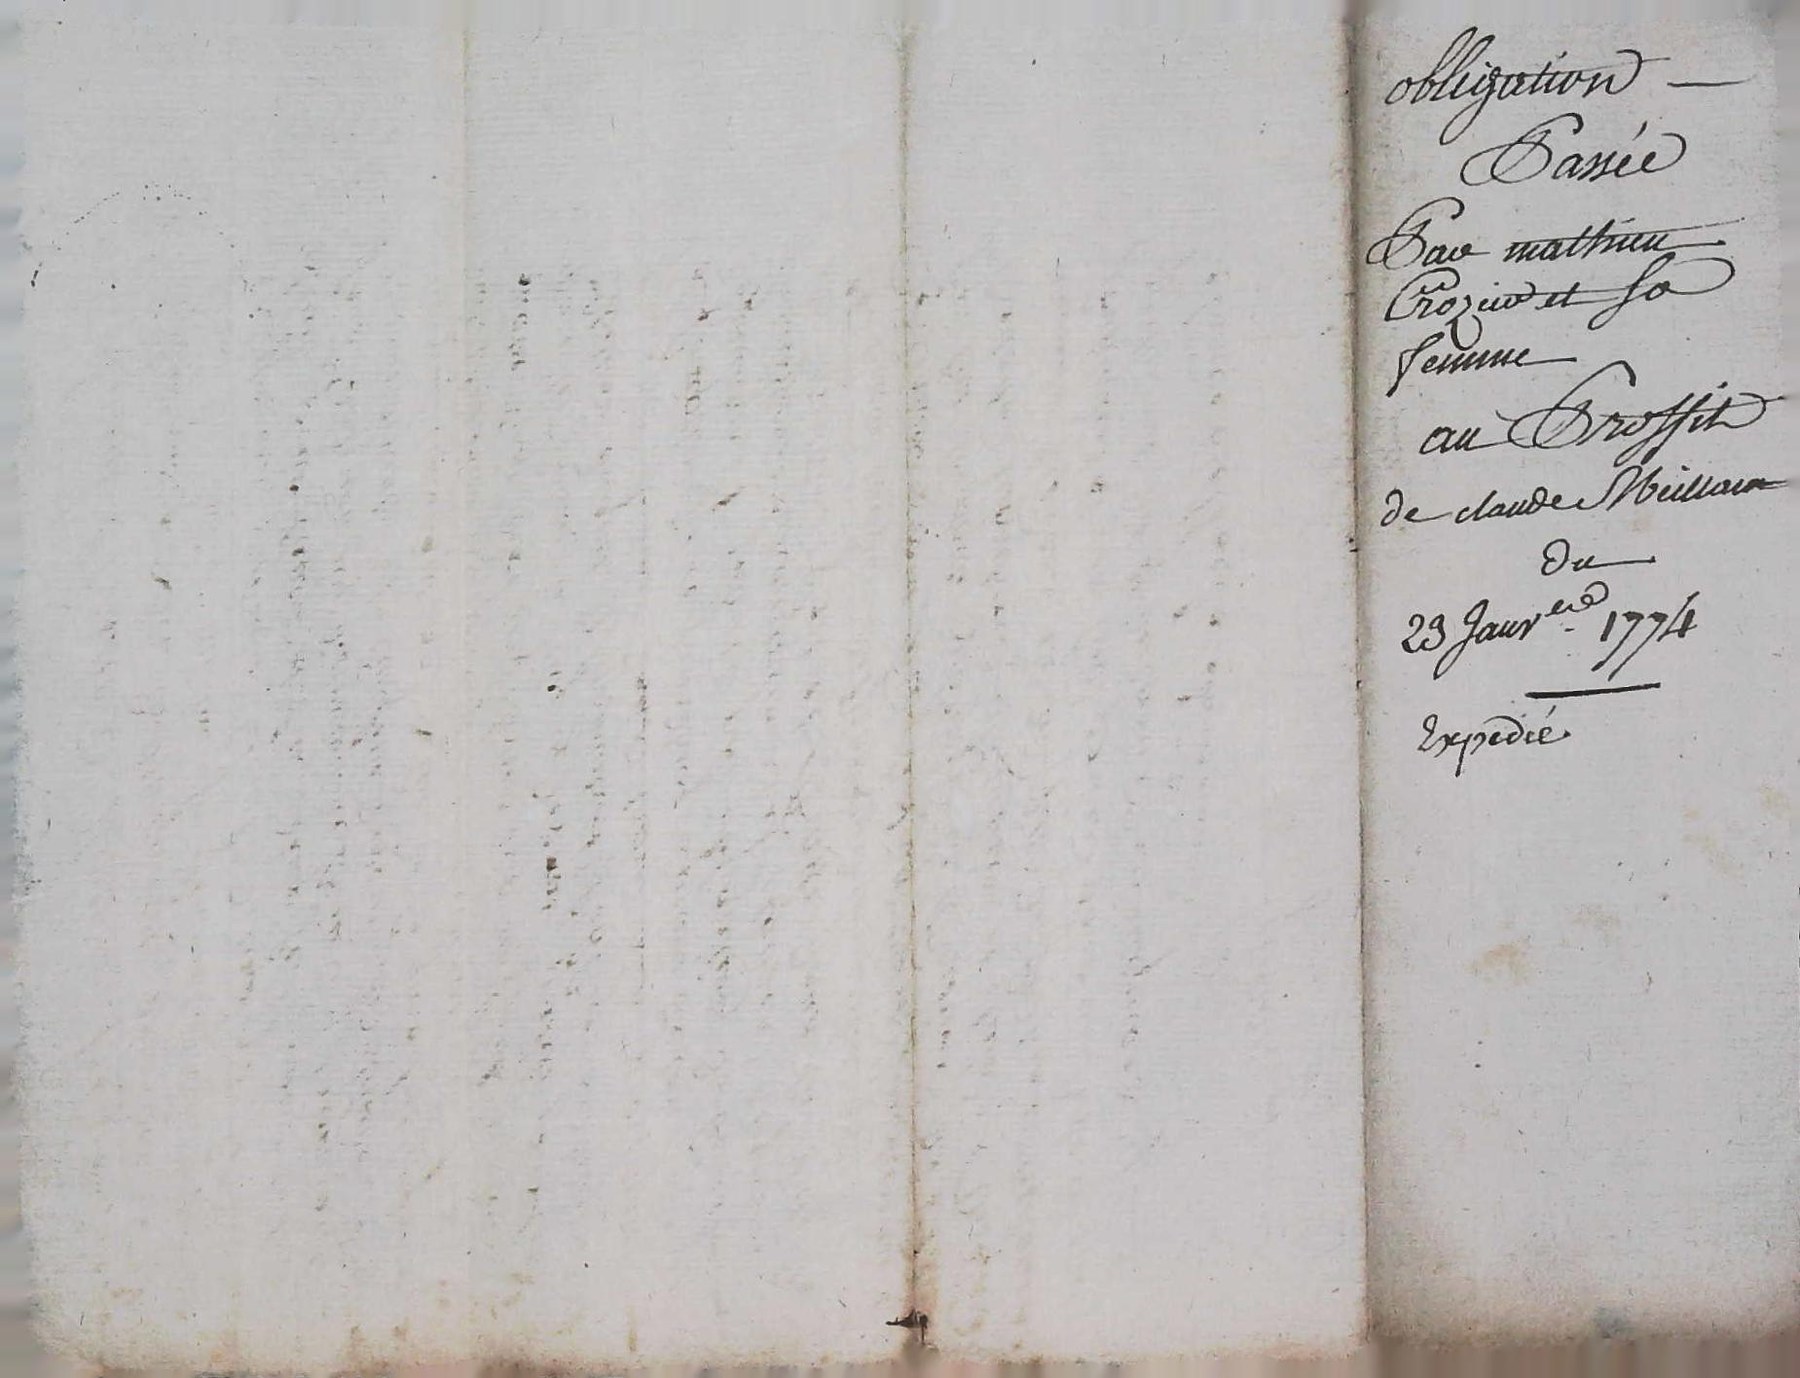 obligation —
Passée
Par mathieu
Crozier et Sa
femme
au Proffit
de claude Meilland
Du
23 Janv.er 1774
Expedié